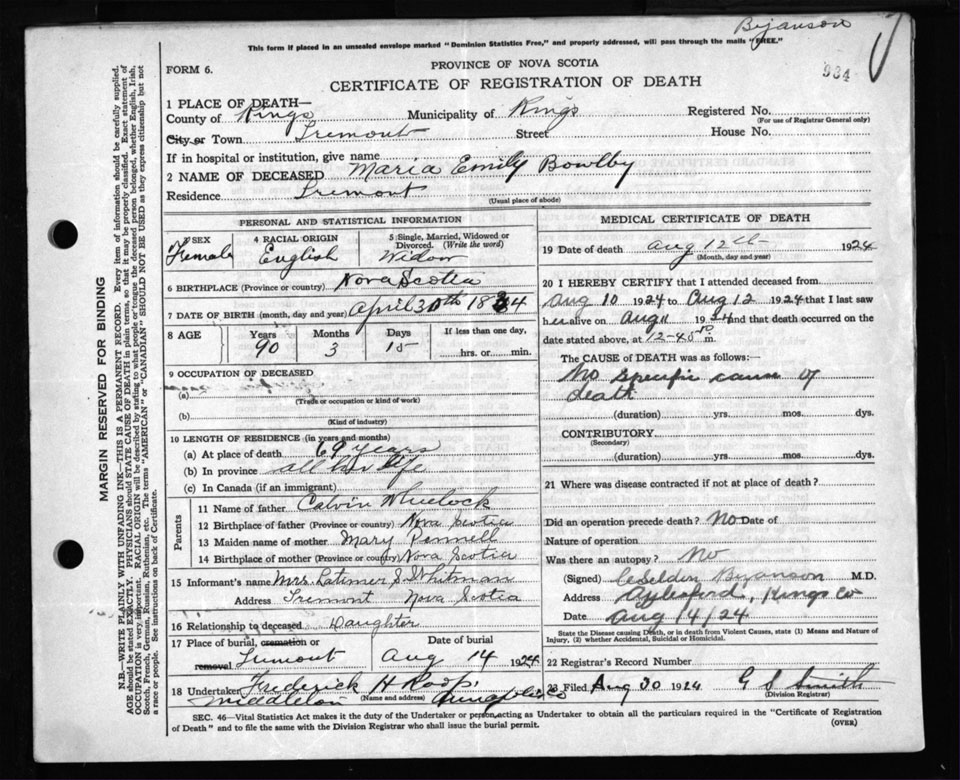 Byanson
This form if placed in an unsealed envelope marked "Dominion Statistics Free," and properly addressed, will pass through the mails "FREE."
934
FORM 6.
PROVINCE OF NOVA SCOTIA
CERTIFICATE OF REGISTRATION OF DEATH
1 PLACE OF DEATH—
County of Kings Municipality of Kings Registered No.
(For use of Registrar General only)
City or Town Tremont Street House No.
If in hospital or institution, give name
2 NAME OF DECEASED Maria Emily Bowlby
Residence Tremont
(Usual place of abode)
PERSONAL AND STATISTICAL INFORMATION
3 SEX 4 RACIAL ORIGIN 5 Single, Married, Widowed or Divorced. (Write the word)
Female English Widow
6 BIRTHPLACE (Province or country) Nova Scotia
7 DATE OF BIRTH (month, day and year) April 30th 1834
8 AGE Years Months Days If less than one day,
90 3 15 hrs. or min.
9 OCCUPATION OF DECEASED
(a)
(Trade or occupation or kind of work)
(b)
(Kind of industry)
10 LENGTH OF RESIDENCE (in years and months)
(a) At place of death 69 years
(b) In province all her life
(c) In Canada (if an immigrant)
Parents
11 Name of father Calvin Wheelock
12 Birthplace of father (Province or country) Nova Scotia
13 Maiden name of mother Mary Pennell
14 Birthplace of mother (Province or country) Nova Scotia
15 Informant's name Mrs. Latimer S. Whitman
Address Tremont Nova Scotia
16 Relationship to deceased Daughter
17 Place of burial, cremation or removal Tremont
Date of burial Aug 14 1924
18 Undertaker Frederick H Roop
(Name and address)
Middleton
MEDICAL CERTIFICATE OF DEATH
19 Date of death Aug 12th 1924
(Month, day and year)
20 I HEREBY CERTIFY that I attended deceased from
Aug 10 1924 to Aug 12 1924 that I last saw
her alive on Aug 11 1924 and that death occurred on the
date stated above, at 12-45 m.
The CAUSE of DEATH was as follows:—
No specific cause of
death
(duration) yrs. mos. dys.
CONTRIBUTORY
(Secondary)
(duration) yrs. mos. dys.
21 Where was disease contracted if not at place of death?
Did an operation precede death? No Date of
Nature of operation
Was there an autopsy? No
(Signed) Byanson M.D.
Address Aylesford, Kings Co
Date Aug 14/24
State the Disease causing Death, or in death from Violent Causes, state (1) Means and Nature of
Injury, (2) whether Accidental, Suicidal or Homicidal.
22 Registrar's Record Number
23 Filed Aug 30 1924 G S Smith
(Division Registrar)
SEC. 46—Vital Statistics Act makes it the duty of the Undertaker or person acting as Undertaker to obtain all the particulars required in the "Certificate of Registration
of Death" and to file the same with the Division Registrar who shall issue the burial permit.
(OVER)
MARGIN RESERVED FOR BINDING
N.B.—WRITE PLAINLY WITH UNFADING INK—THIS IS A PERMANENT RECORD. Every item of information should be carefully supplied.
AGE should be stated EXACTLY. PHYSICIANS should STATE CAUSE OF DEATH in plain terms, so that it may be properly classified. Exact statement of
OCCUPATION is very important. RACIAL ORIGIN will be described by stating to what people or tongue the deceased person belonged, whether English, Irish,
Scotch, French, German, Russian, Ruthenian, etc. The terms "AMERICAN" or "CANADIAN" SHOULD NOT BE USED as they express citizenship but not
a race or people. See instructions on back of Certificate.